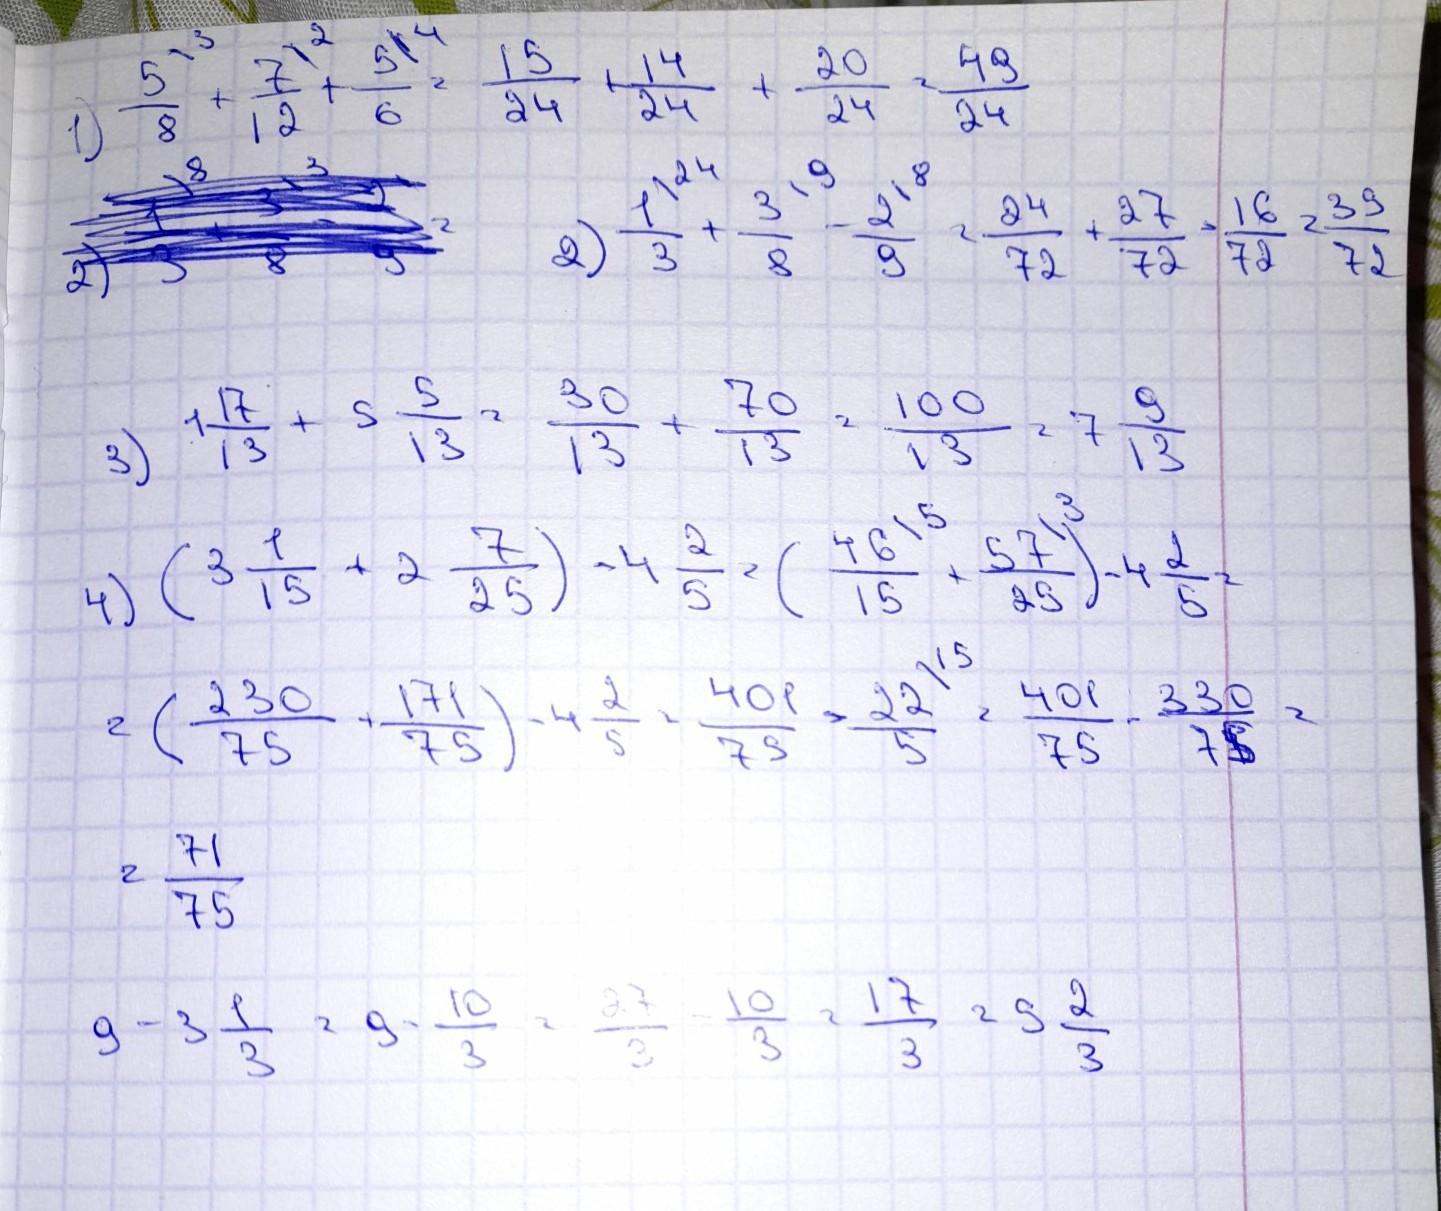 1) 5/8 \3 + 7/12 \2 + 5/6 \4 = 15/24 + 14/24 + 20/24 = 49/24
2) 1/3 \24 + 3/8 \9 - 2/9 \8 = 24/72 + 27/72 - 16/72 = 39/72
3) 1 17/13 + 5 5/13 = 30/13 + 70/13 = 100/13 = 7 9/13
4) (3 1/15 + 2 7/25) - 4 2/5 = (46/15 \5 + 57/25 \3) - 4 2/5 =
= (230/75 + 171/75) - 4 2/5 = 401/75 - 22/5 \15 = 401/75 - 330/75 =
= 71/75
9 - 3 1/3 = 9 - 10/3 = 27/3 - 10/3 = 17/3 = 5 2/3